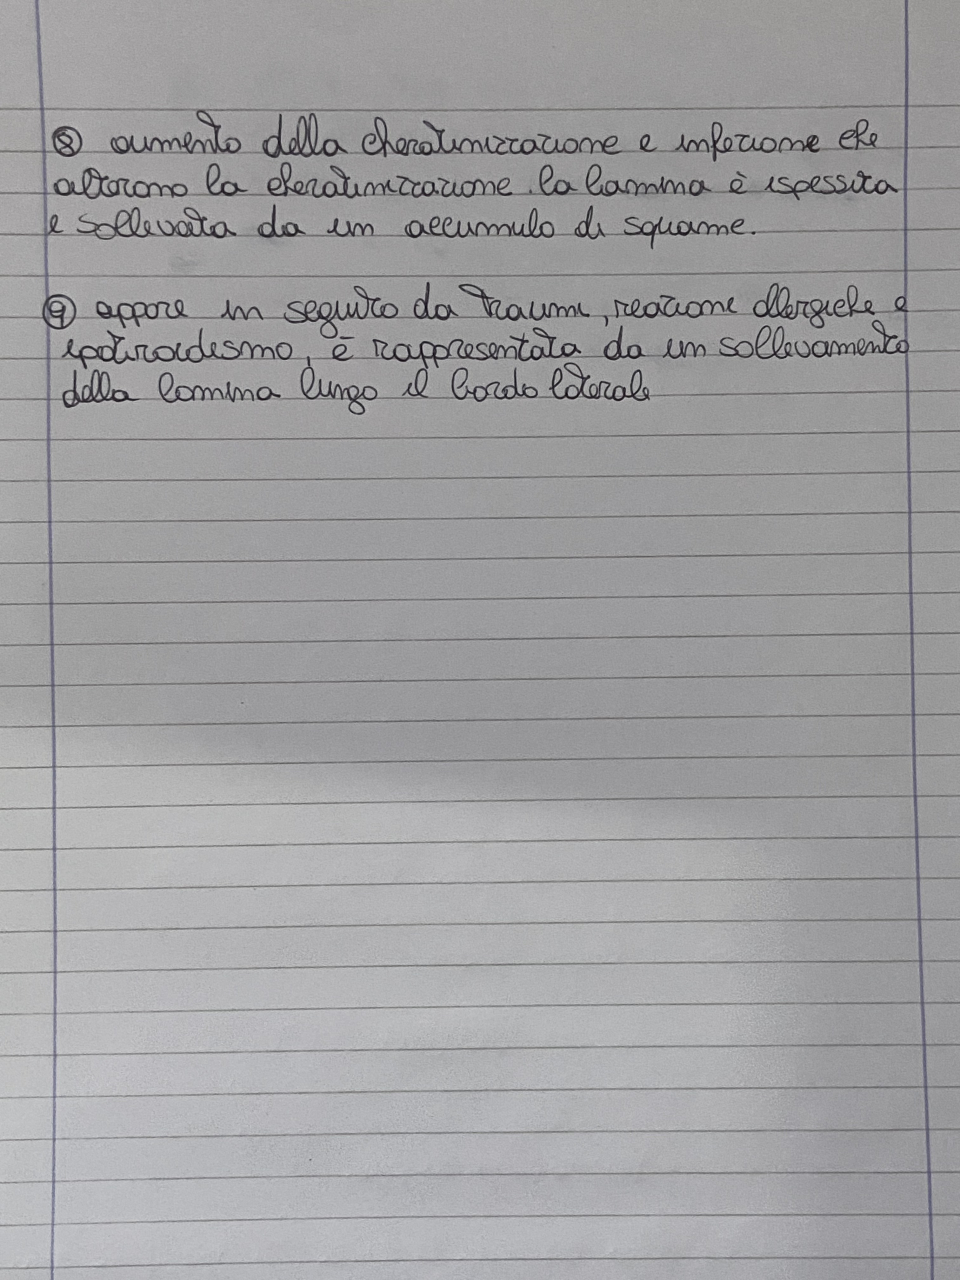 ⑧ aumento della cheratinizzazione e infezione che
alterano la cheratinizzazione. la lamina è ispessita
e sollevata da un accumulo di squame.
⑨ appare in seguito da traumi, reazione allergiche e
ipotiroidismo, è rappresentata da un sollevamento
della lamina lungo il bordo laterale